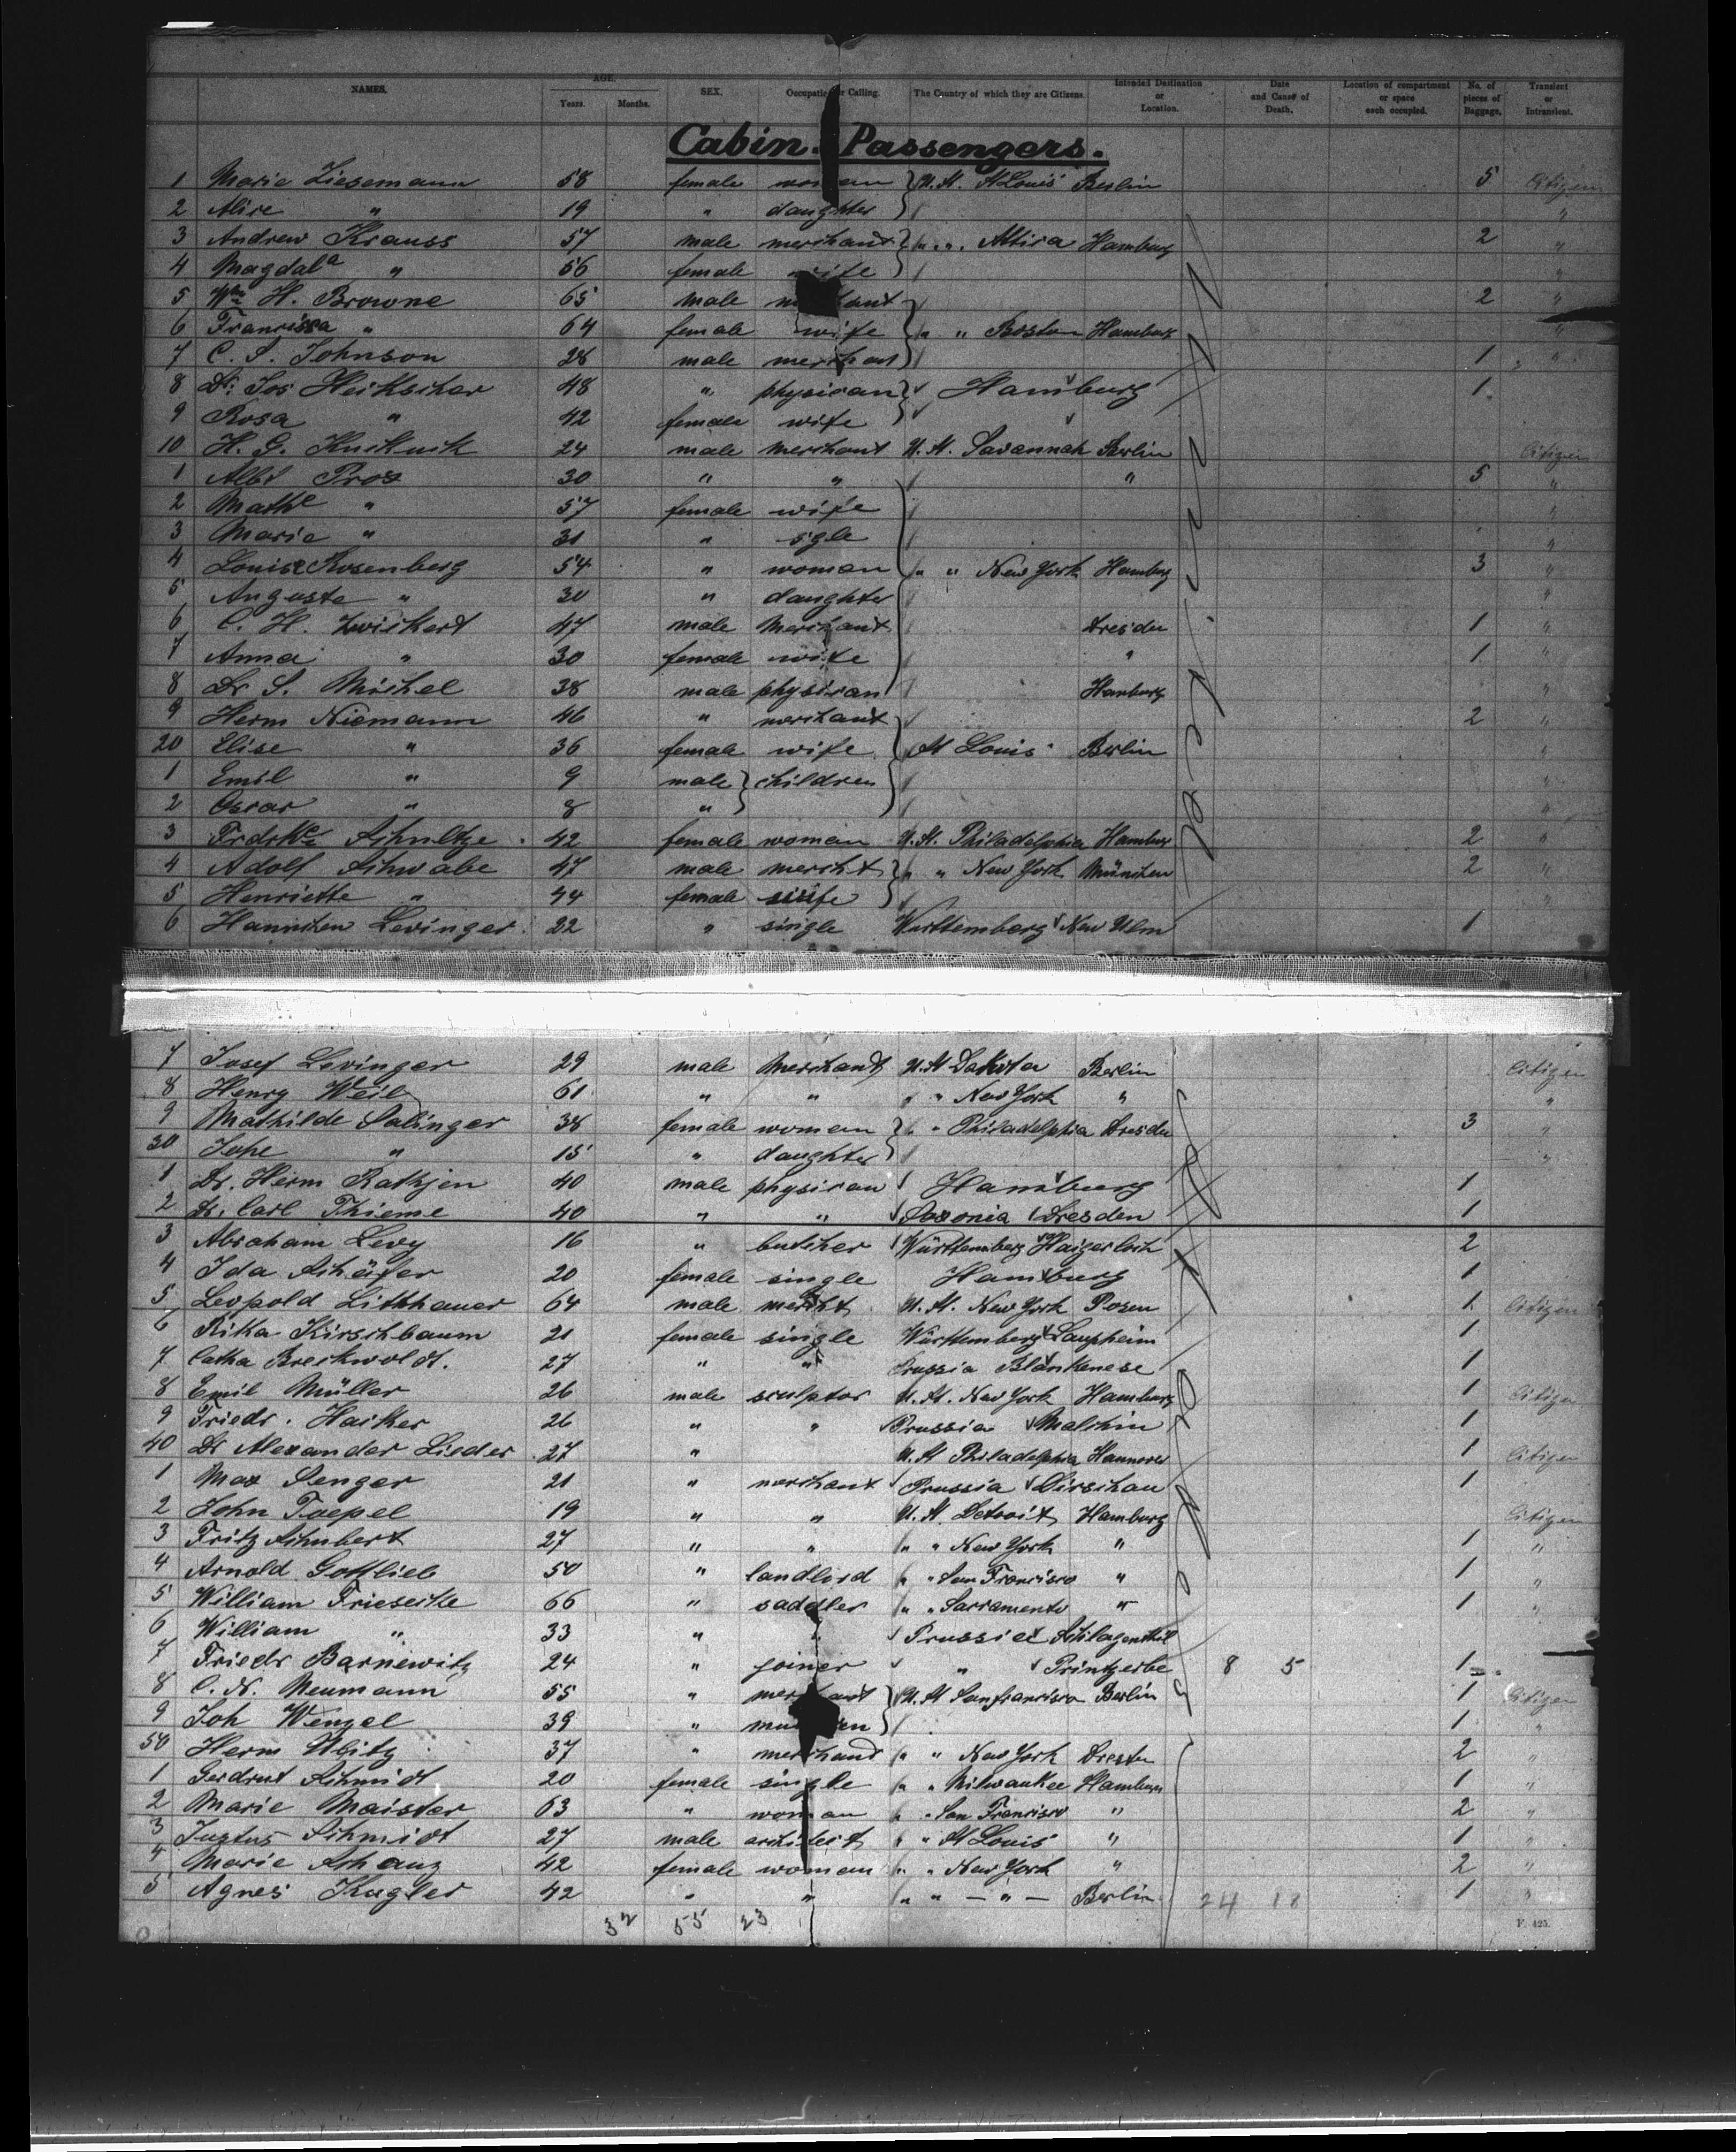 NAMES. AGE. Years. Months. SEX. Occupation or Calling. The Country of which they are Citizens. Intended Destination or Location. Date and Cause of Death. Location of compartment or space each occupied. No. of pieces of Baggage. Transient or Intransient.
Cabin. Passengers.
1 Marie Ziesemann 58 female woman U.St. St Louis Berlin 5 Citizen
2 Alice " 19 " daughter "
3 Andrew Krauss 57 male merchant " " Attica Hamburg 2 "
4 Magdala " 56 female wife "
5 Wm H. Browne 65 male merchant 2 "
6 Francissa " 64 female wife " " Boston Hamburg "
7 C. S. Johnson 28 male merchant 1 "
8 Dr. Jos 48 " physician Hamburg 1
9 Rosa " 42 female wife
10 H. G. 24 male merchant U.St. Savannah Berlin Citizen
1 Albt 30 " " " 5 "
2 Mathe " 57 female wife "
3 Marie " 31 " sgle "
4 Louise Rosenberg 54 " woman " " New York Hamburg 3 "
5 Auguste " 30 " daughter "
6 C. H. Zwickert 47 male merchant Dresden 1 "
7 Anna " 30 female wife " 1 "
8 Dr S. Michel 38 male physician Hamburg "
9 Herm Niemann 46 " merchant 2 "
20 Elise " 36 female wife St Louis Berlin "
1 Emil " 9 male children "
2 Oscar " 8 " "
3 Schultze 42 female woman U.St. Philadelphia Hamburg 2 "
4 Adolf Schwabe 47 male mercht " " New York München 2 "
5 Henriette " 44 female wife "
6 Hannchen Levinger 22 " single Württemberg New Ulm 1
7 Josef Levinger 29 male merchant U.St Dakota Berlin Citizen
8 Henry Weil 61 " " " " New York " "
9 Mathilde Salinger 38 female woman " " Philadelphia Dresden 3 "
30 " 15 " daughter "
1 Dr. Herm Rathjen 40 male physician Hamburg 1
2 Dr. Carl Thieme 40 " " Saxonia Dresden 1
3 Abraham Levy 16 " butcher Württemberg Haigerloch 2
4 Ida Schäfer 20 female single Hamburg 1
5 Leopold Litthauer 64 male mercht U.St. New York Posen 1 Citizen
6 Rika Kirschbaum 21 female single Württemberg Laupheim 1
7 Catha Breckwoldt. 27 " " Prussia Blankenese 1
8 Emil Müller 26 male sculptor U.St. New York Hamburg 1 Citizen
9 Friedr. Hacker 26 " " Prussia Malchin 1
40 Dr Alexander Lieder 27 " U.St Philadelphia Hannover 1 Citizen
1 Max Senger 21 " merchant Prussia Dirschau 1
2 John Toepel 19 " " U.St. Detroit Hamburg Citizen
3 Fritz Schubert 27 " " " " New York " 1 "
4 Arnold Gottlieb 50 " landlord " " San Francisco " 1 "
5 William Friesecke 66 " saddler " " Sacramento " 1 "
6 William " 33 " " Prussia
7 Friedr Barnewitz 24 " joiner " Printzerbe 8 5 1
8 C. N. Neumann 55 " merchant U.St San francisco Berlin 1 Citizen
9 Joh Wenzel 39 " 1 "
50 Herm Ubitz 37 " merchand " " New York Dresden 2 "
1 Gerdrut Schmidt 20 female single " " Milwaukee Hamburg 1 "
2 Marie Maister 63 " woman " " San Francisco " 2 "
3 Justus Schmidt 27 male architect " " St Louis " 1 "
4 Marie Schanz 42 female woman " " New York " 2 "
5 Agnes Kugler 42 " " " " — " — Berlin 24 18 1 "
32 55 23
F. 425.